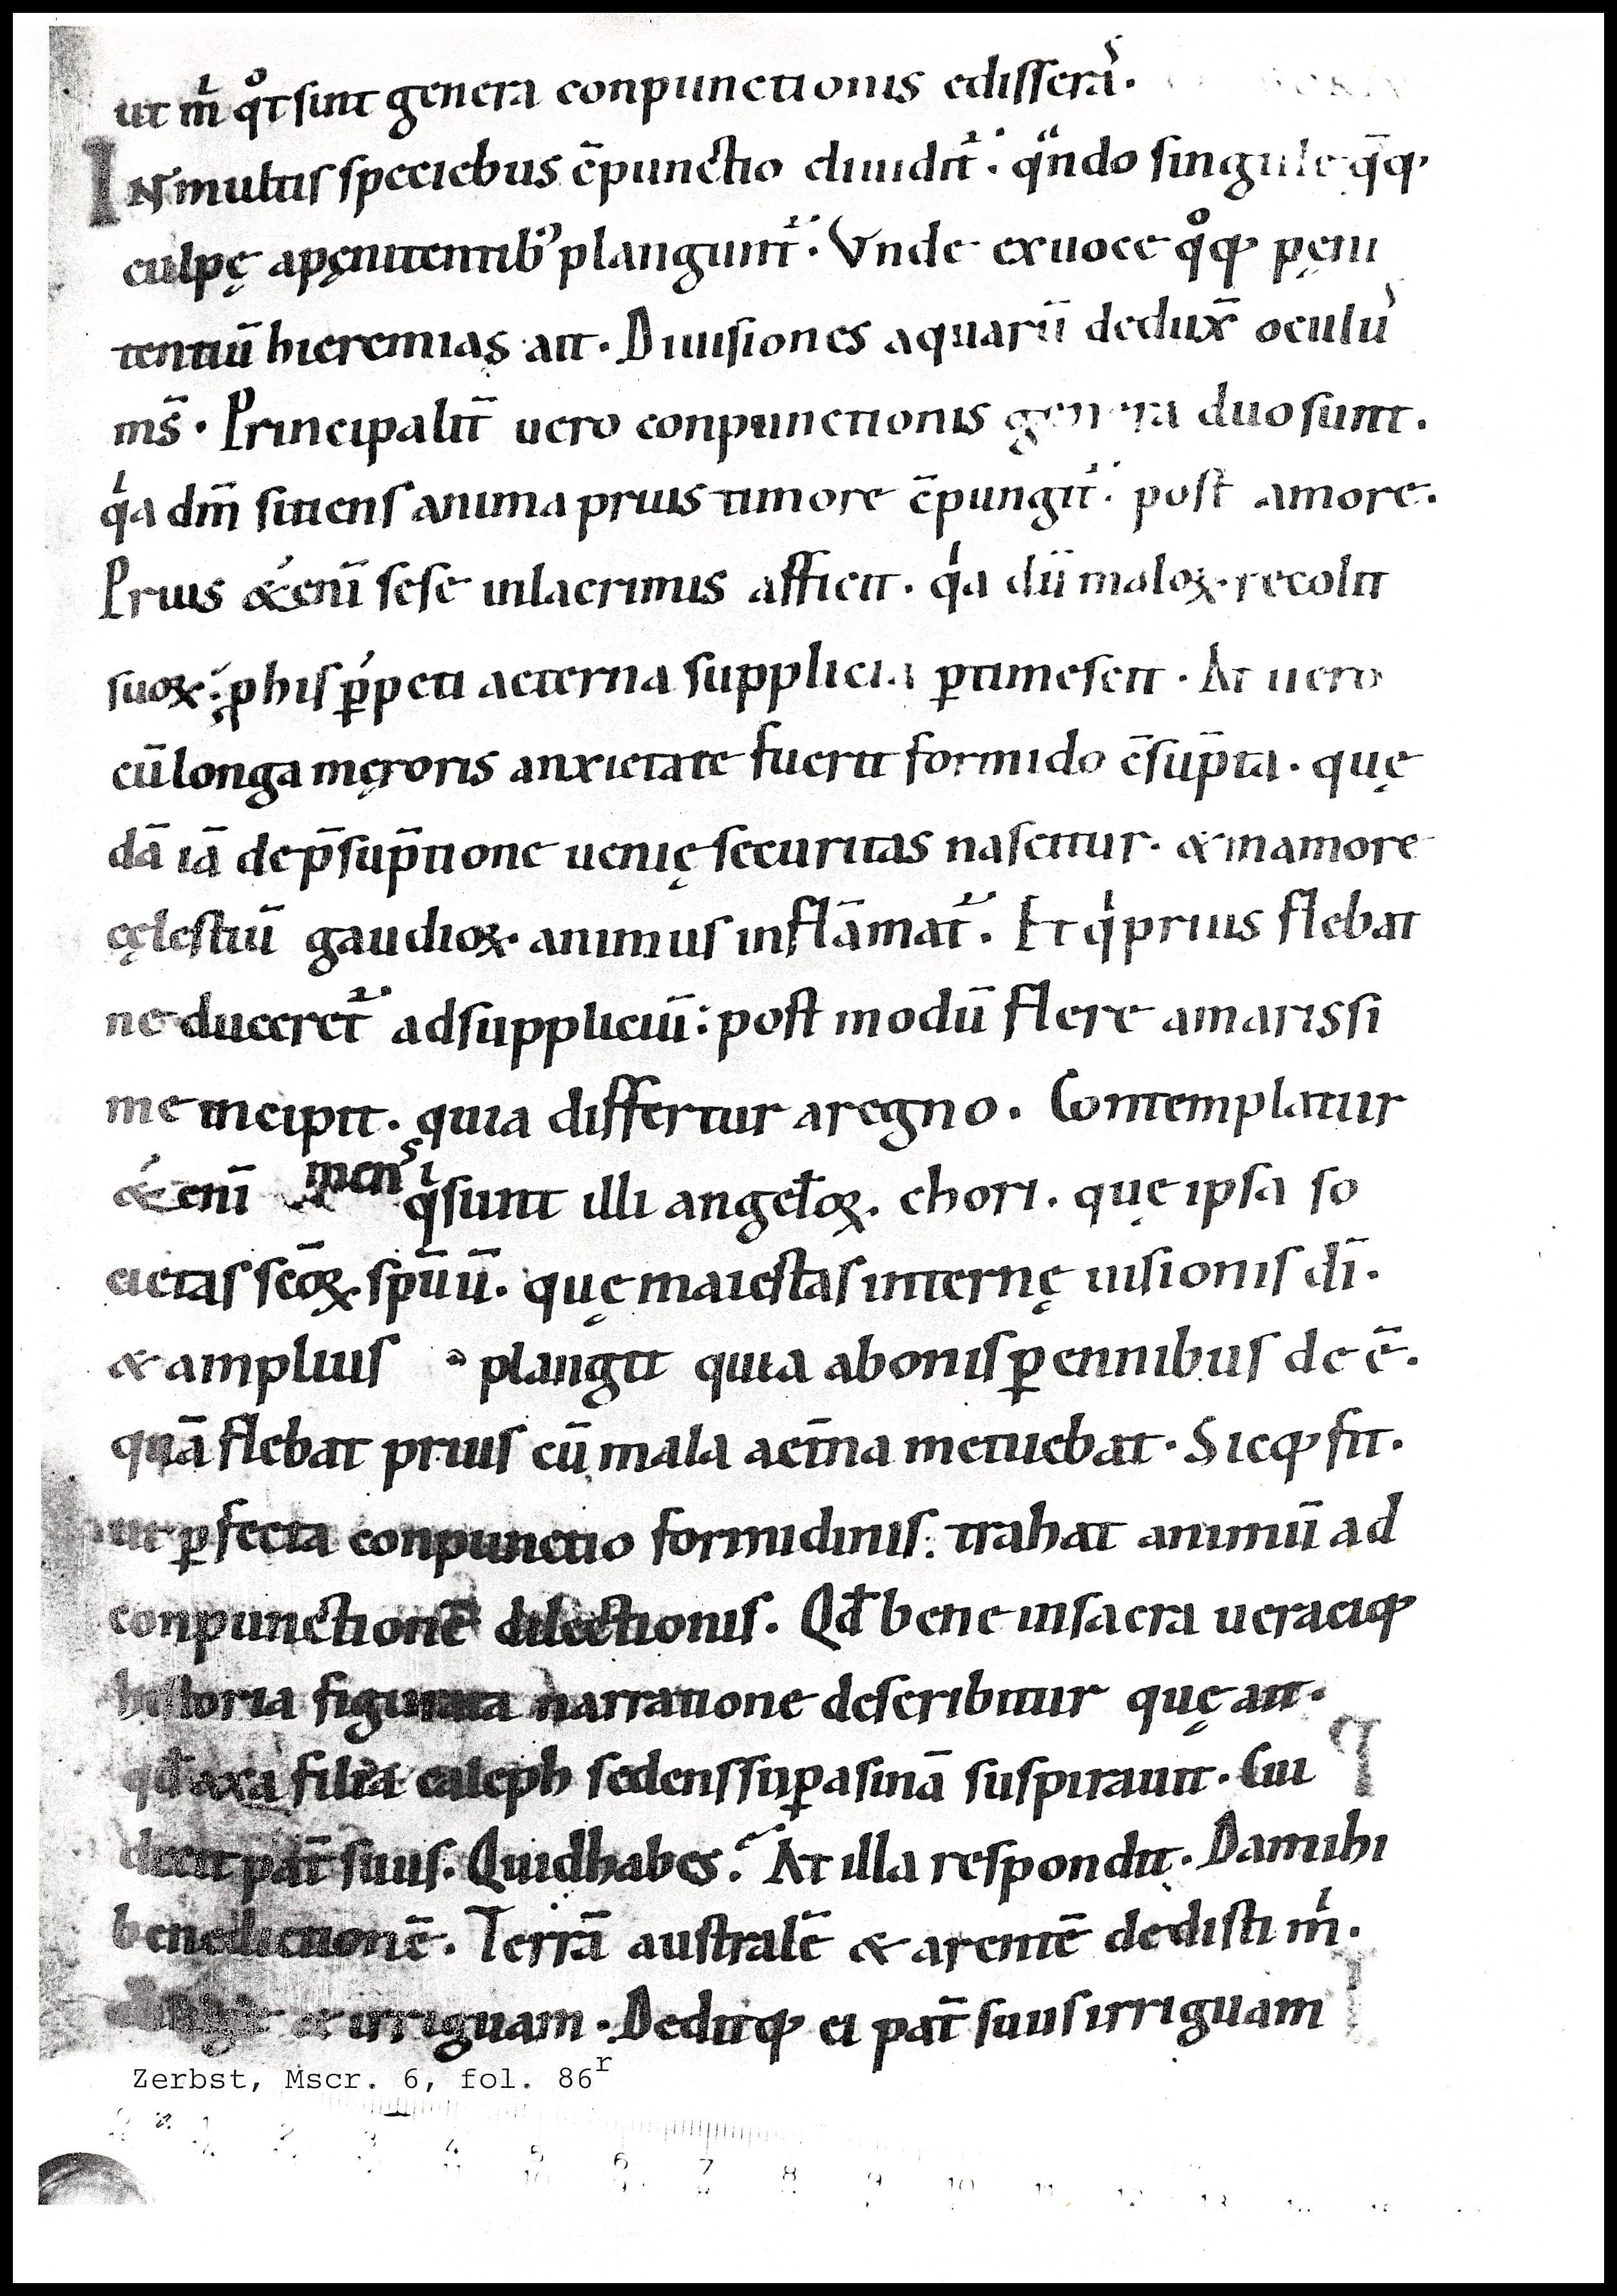 ut m̄ qͦt sunt genera conpunctionis edisserās.
IN multis speciebus c̄punctio diuidit᷑. qͣndo singule q̄q;
culpę a pęnitentib; plangunt᷑. Vnde ex uoce qͦq; pęni
tentiū hieremias ait. Diuisiones aquarū dedux̄ oculus
ms̄. Principalit̄ uero conpunctionis genera duo sunt.
qͥa dm̄ sitiens anima prius timore c̄pungit᷑. post amore.
Prius &enī sese in lacrimis afficit. qͥa dū maloꝝ recolit
suoꝝ: ꝓ his ꝑpeti aeterna supplicia ꝑtimescit. At uero
cū longa męroris anxietate fuerit formido c̄sūpta. quę
dā iā de p̄sūptione uenię securitas nascitur. & in amore
cęlestiū gaudioꝝ. animus inflāmat᷑. Et qͥ prius flebat
ne duceret᷑ ad suppliciū: post modū flere amarissi
me incipit. quia differtur a regno. Contemplatur
&enī mens qͥ sunt illi angeloꝝ. chori. quę ipsa so
cietas sc̄oꝝ. sp̄uū. quę maiestas internę uisionis dī.
& amplius plangit quia a bonis ꝑennibus deē.
quā flebat prius cū mala aet̄na metuebat. Sicq; fit.
ut ꝑfecta conpunctio formidinis: trahat animū ad
conpunctionē dilectionis. Qd̄ bene in sacra ueraciq;
historia figurata narratione describitur quę ait.
qd̄ axa filia caleph sedens suꝑ asinā suspirauit. Cui
dixit pat̄ suus. Quid habes? At illa respondit. Da mihi
benedictionē. Terrā australē & arentē dedisti m̄.
& irriguam. Deditq; ei pat̄ suus irriguam
Zerbst, Mscr. 6, fol. 86r
0 1 2 3 4 5 6 7 8 9 10 11 12 13